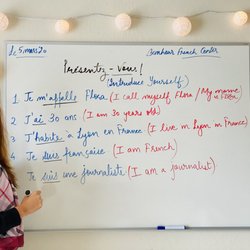 Le 5 mars 20 Bonheur French Center
Présentez-vous!
(Introduce Yourself)
1 Je m'appelle Flora (I call myself Flora / My name is Flora)
2 J'ai 30 ans (I am 30 years old)
3 J'habite à Lyon en France (I live in Lyon in France)
4 Je suis française (I am French)
5 Je suis une journaliste (I am a journalist)